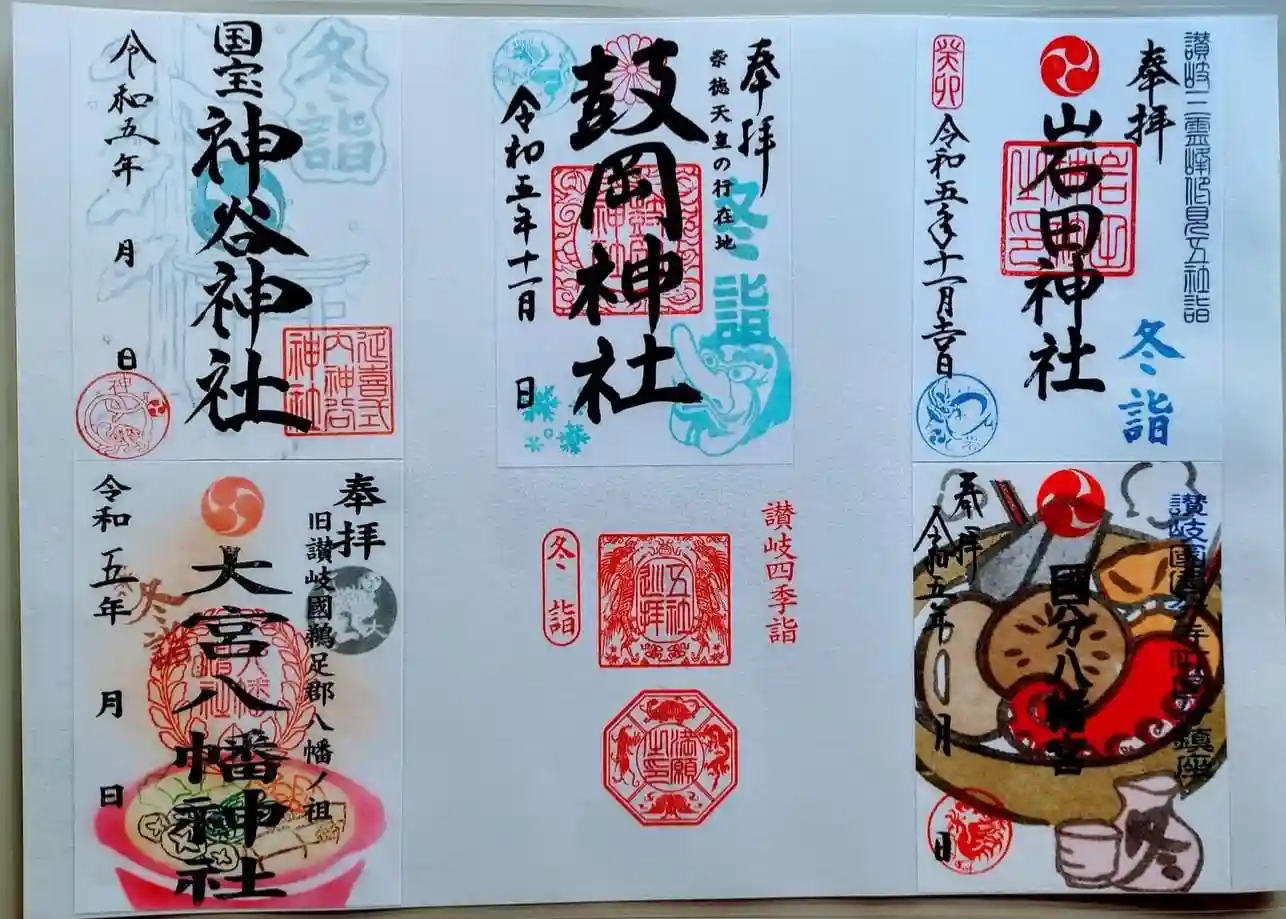 讃岐三霊峰伏見五社詣
奉拝
岩田神社
岩田神社之印
癸卯
令和五年十一月吉日
冬詣
奉拝
崇徳天皇の行在地
鼓岡神社
鼓岡神社
令和五年十一月 日
冬詣
冬詣
国宝
神谷神社
延喜式内神谷神社
令和五年 月 日
神
讃岐國
鎮座
奉拝
國分八幡宮
令和五年 月 日
冬
讃岐四季詣
五社巡拝
冬詣
満願之印
奉拝
旧讃岐國鵜足郡八幡ノ祖
大宮八幡神社
冬詣
令和五年 月 日